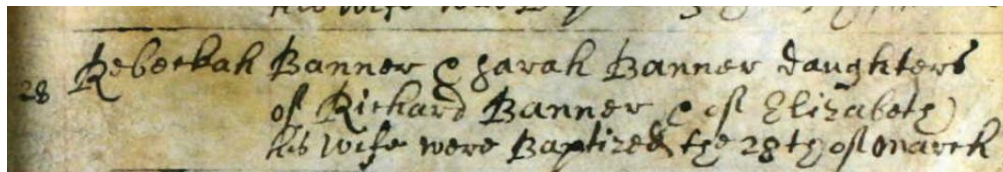 his wife
28 Rebeckah Banner & Sarah Banner daughters
of Richard Banner & of Elizabeth
his wife were Baptized the 28th of March